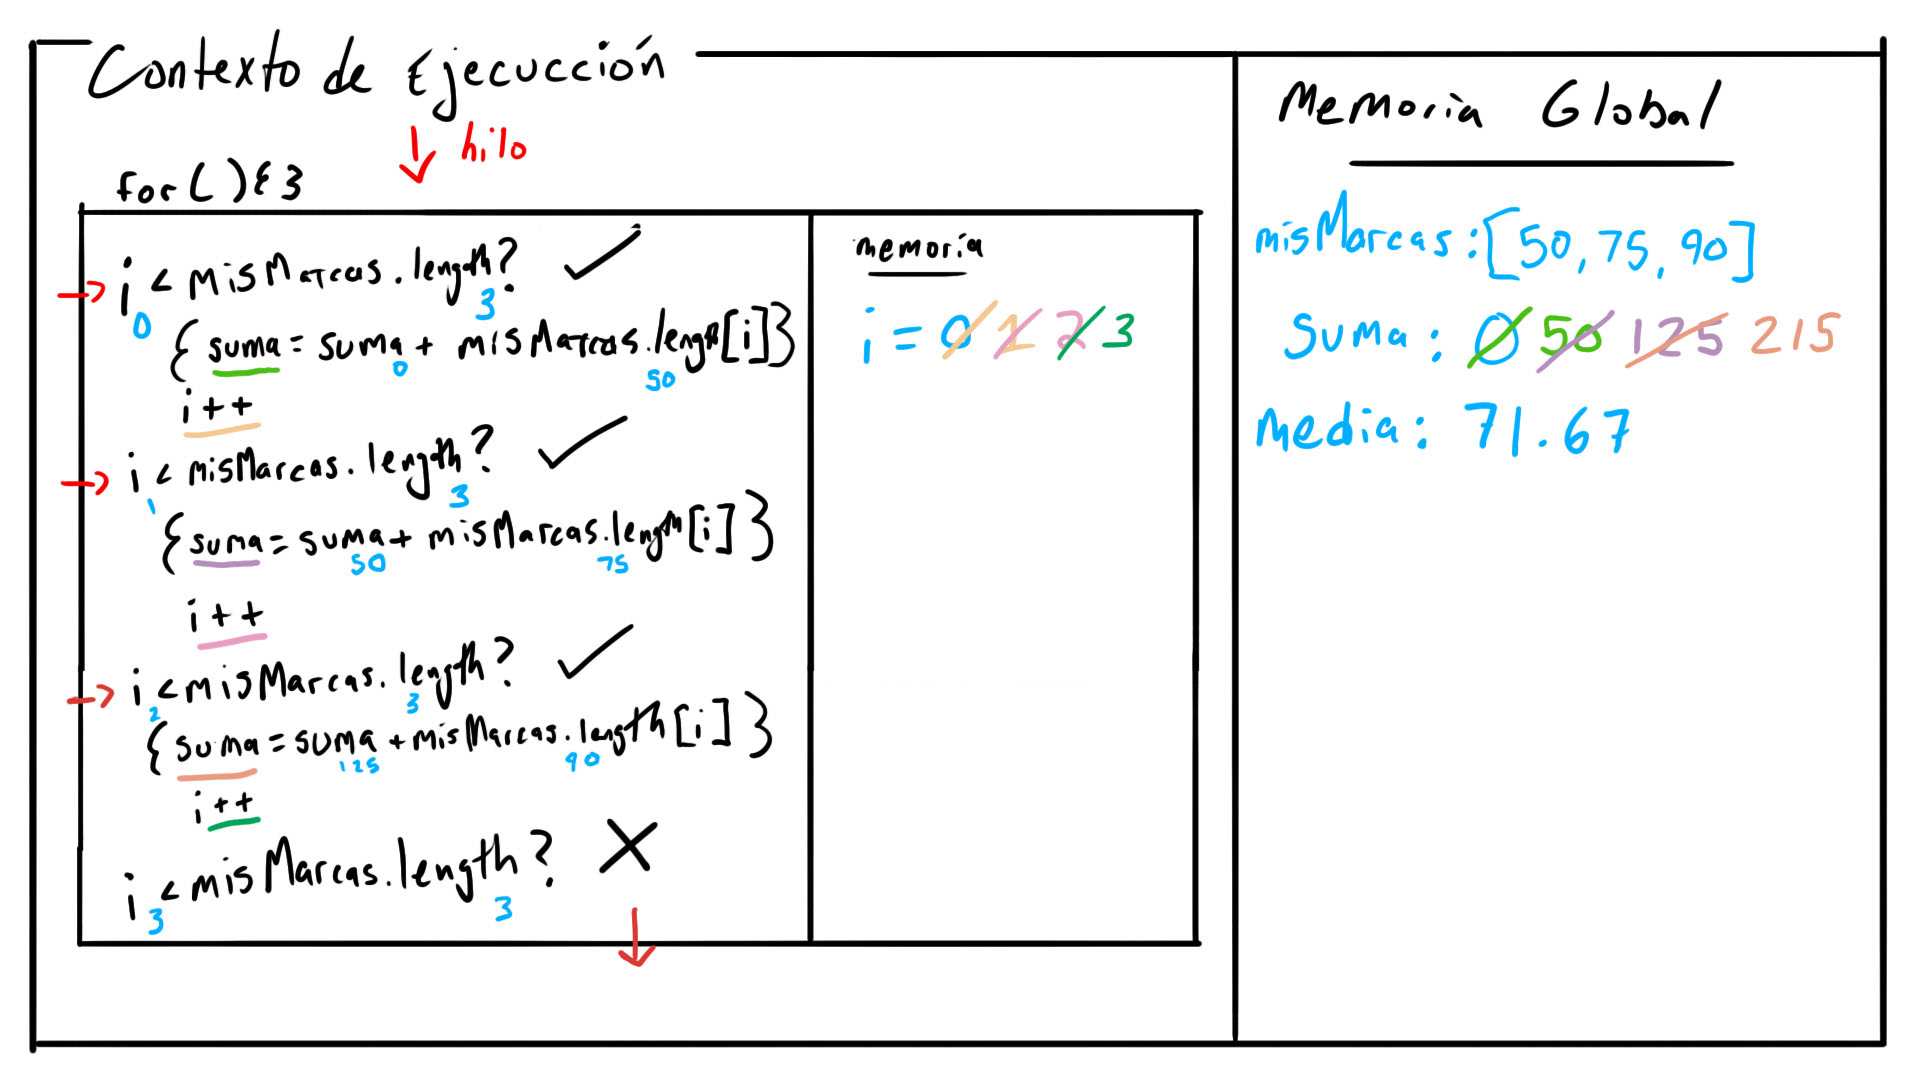 Contexto de Ejecucción
hilo
for ( ) { }
i < misMarcas.length? ✓
0 3
{ suma = suma + misMarcas.length[i] }
0 50
i++
i < misMarcas.length? ✓
1 3
{ suma = suma + misMarcas.length[i] }
50 75
i++
i < misMarcas.length? ✓
2 3
{ suma = suma + misMarcas.length[i] }
125 90
i++
i < misMarcas.length? X
3 3
memoria
i = 0 1 2 3
Memoria Global
misMarcas: [50, 75, 90]
Suma: 0 50 125 215
media: 71.67